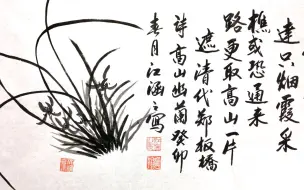 達只烟霞采
樵或恐通来
路更取高山一片
遮清代鄭板橋
詩高山幽蘭癸卯
春月江涵之寫